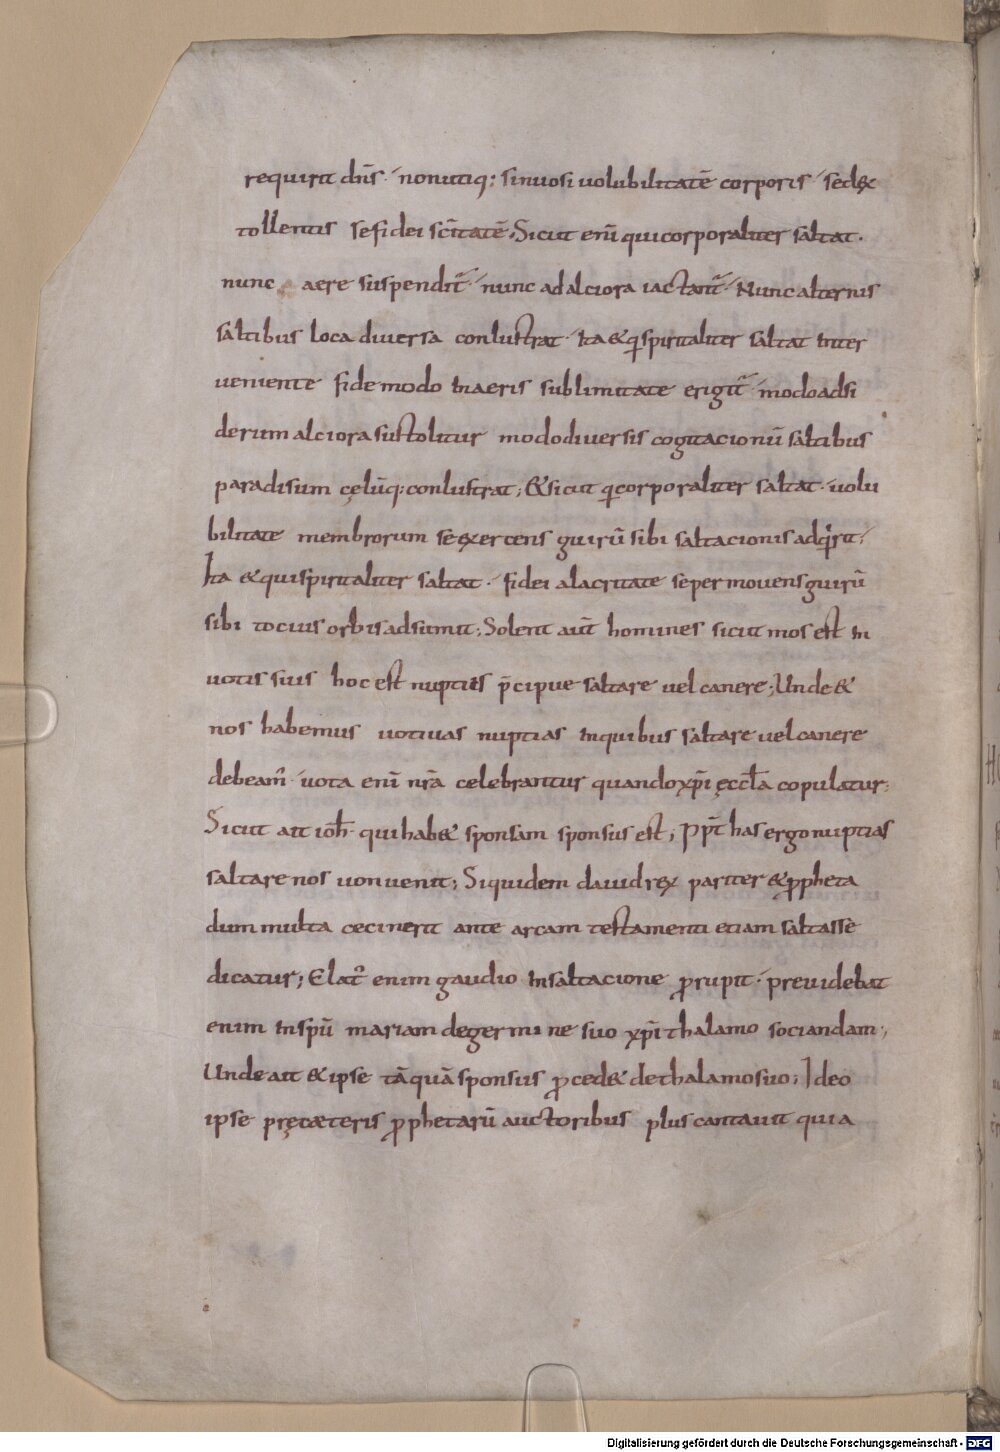 requirit dn̄s · non utiq; sinuosi uolubilitatē corporis · sed ex
tollentis se fidei sc̄itatē; Sicut eni̅ qui corporaliter saltat ·
nunc aere suspendit᷑ · nunc ad alciora iactat᷑ · Nunc alternis
saltibus loca diuersa conlustrat · Ita & qͥ spiritaliter saltat inter
ueniente fide modo in aeris sublimitate erigit᷑ · modo ad si
derum alciora sustolitur modo diuersis cogitacionū saltibus
paradisum cęlūq; conlustrat; & sicut qͥ corporaliter saltat · uolu
bilitate membrorum se exercens guirū sibi saltacionis adqͥrit;
Ita & qui spiritaliter saltat · fidei alacritate se per mouens guirū
sibi tocius orbis adsumit; Solent aut̄ homines sicut mos est in
uotis suis hoc est nuptiis p̄cipue saltare uel canere; Unde &
nos habemus uotiuas nuptias in quibus saltare uel canere
debeam᷒ · uota eni̅ nr̄a celebrantur quando xp̄i ęccl̄a copulatur;
Sicut ait ioh̄ · qui hab& sponsam sponsus est; Ppt̄ has ergo nuptias
saltare nos conuenit; Siquidem dauid rex pariter & ꝓpheta
dum multa cecinerit ante arcam testamenti etiam saltasse
dicatur; Elat᷒ enim gaudio in saltacione ꝓrupit · preuidebat
enim in spū mariam de germine suo xp̄i thalamo sociandam;
Unde ait & ipse tāquā sponsus ꝓced& de thalamo suo; Ideo
ipse pręcæteris ꝓphetarū auctoribus plus cantauit quia
Digitalisierung gefördert durch die Deutsche Forschungsgemeinschaft - DFG